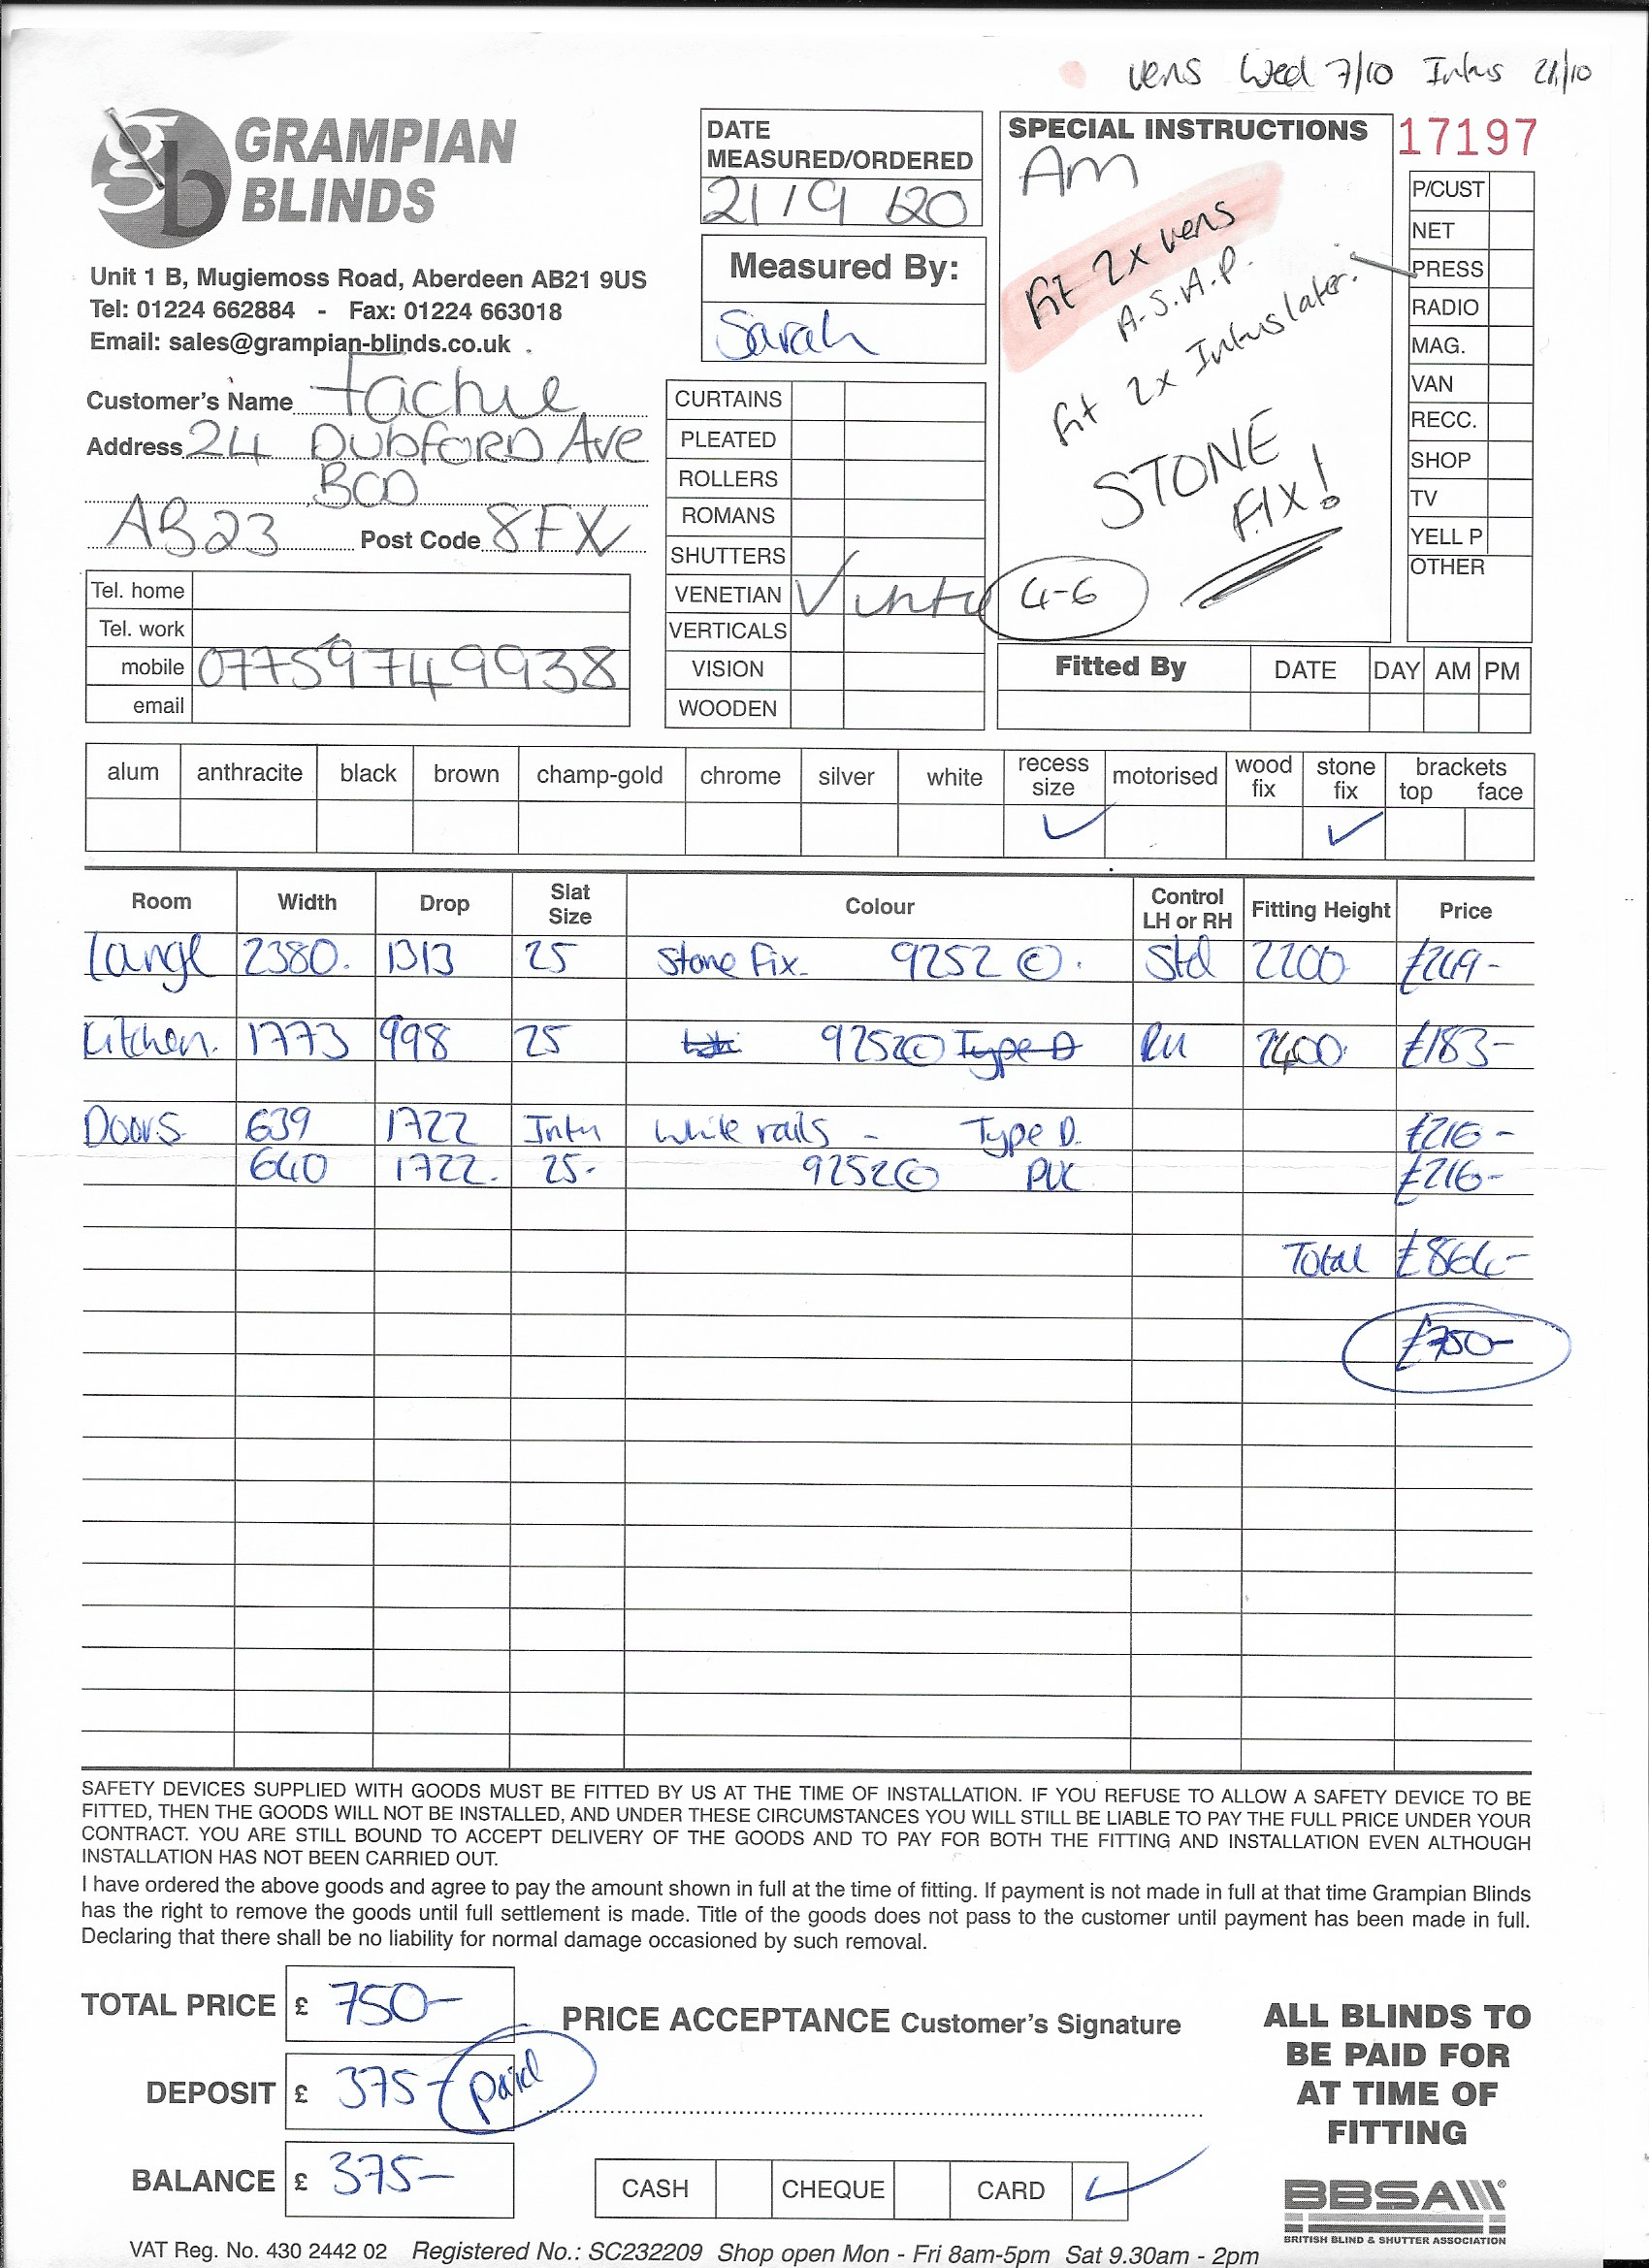 vens Wed 7/10 Intus 21/10
GRAMPIAN
BLINDS
Unit 1 B, Mugiemoss Road, Aberdeen AB21 9US
Tel: 01224 662884 - Fax: 01224 663018
Email: sales@grampian-blinds.co.uk
DATE
MEASURED/ORDERED
21/9/20
Measured By:
Sarah
SPECIAL INSTRUCTIONS
AM
Fit 2x vens
A.S.A.P.
Fit 2x Intus later.
STONE
FIX!
4-6
17197
P/CUST
NET
PRESS
RADIO
MAG.
VAN
RECC.
SHOP
TV
YELL P
OTHER
Customer's Name Fachie
Address 24 DUBFORD Ave
BOD
AB23 Post Code 8FX
Tel. home
Tel. work
mobile 07759749938
email
CURTAINS
PLEATED
ROLLERS
ROMANS
SHUTTERS
VENETIAN ✓ intu
VERTICALS
VISION
WOODEN
Fitted By DATE DAY AM PM
alum anthracite black brown champ-gold chrome silver white recess size motorised wood fix stone fix brackets top face
✓ ✓
Room Width Drop Slat Size Colour Control LH or RH Fitting Height Price
2380. 1313 25 Stone Fix. 9252 ©. Std 2200 £249-
Kitchen. 1773 998 25 9252© Type D RH 2400 £183-
Doors 639 1722 Intu White rails - Type D. £216-
640 1722. 25- 9252© £216-
Total £864-
£750-
SAFETY DEVICES SUPPLIED WITH GOODS MUST BE FITTED BY US AT THE TIME OF INSTALLATION. IF YOU REFUSE TO ALLOW A SAFETY DEVICE TO BE
FITTED, THEN THE GOODS WILL NOT BE INSTALLED, AND UNDER THESE CIRCUMSTANCES YOU WILL STILL BE LIABLE TO PAY THE FULL PRICE UNDER YOUR
CONTRACT. YOU ARE STILL BOUND TO ACCEPT DELIVERY OF THE GOODS AND TO PAY FOR BOTH THE FITTING AND INSTALLATION EVEN ALTHOUGH
INSTALLATION HAS NOT BEEN CARRIED OUT.
I have ordered the above goods and agree to pay the amount shown in full at the time of fitting. If payment is not made in full at that time Grampian Blinds
has the right to remove the goods until full settlement is made. Title of the goods does not pass to the customer until payment has been made in full.
Declaring that there shall be no liability for normal damage occasioned by such removal.
TOTAL PRICE £ 750-
DEPOSIT £ 375- paid
BALANCE £ 375-
PRICE ACCEPTANCE Customer's Signature
CASH CHEQUE CARD ✓
ALL BLINDS TO
BE PAID FOR
AT TIME OF
FITTING
BBSA
BRITISH BLIND & SHUTTER ASSOCIATION
VAT Reg. No. 430 2442 02 Registered No.: SC232209 Shop open Mon - Fri 8am-5pm Sat 9.30am - 2pm